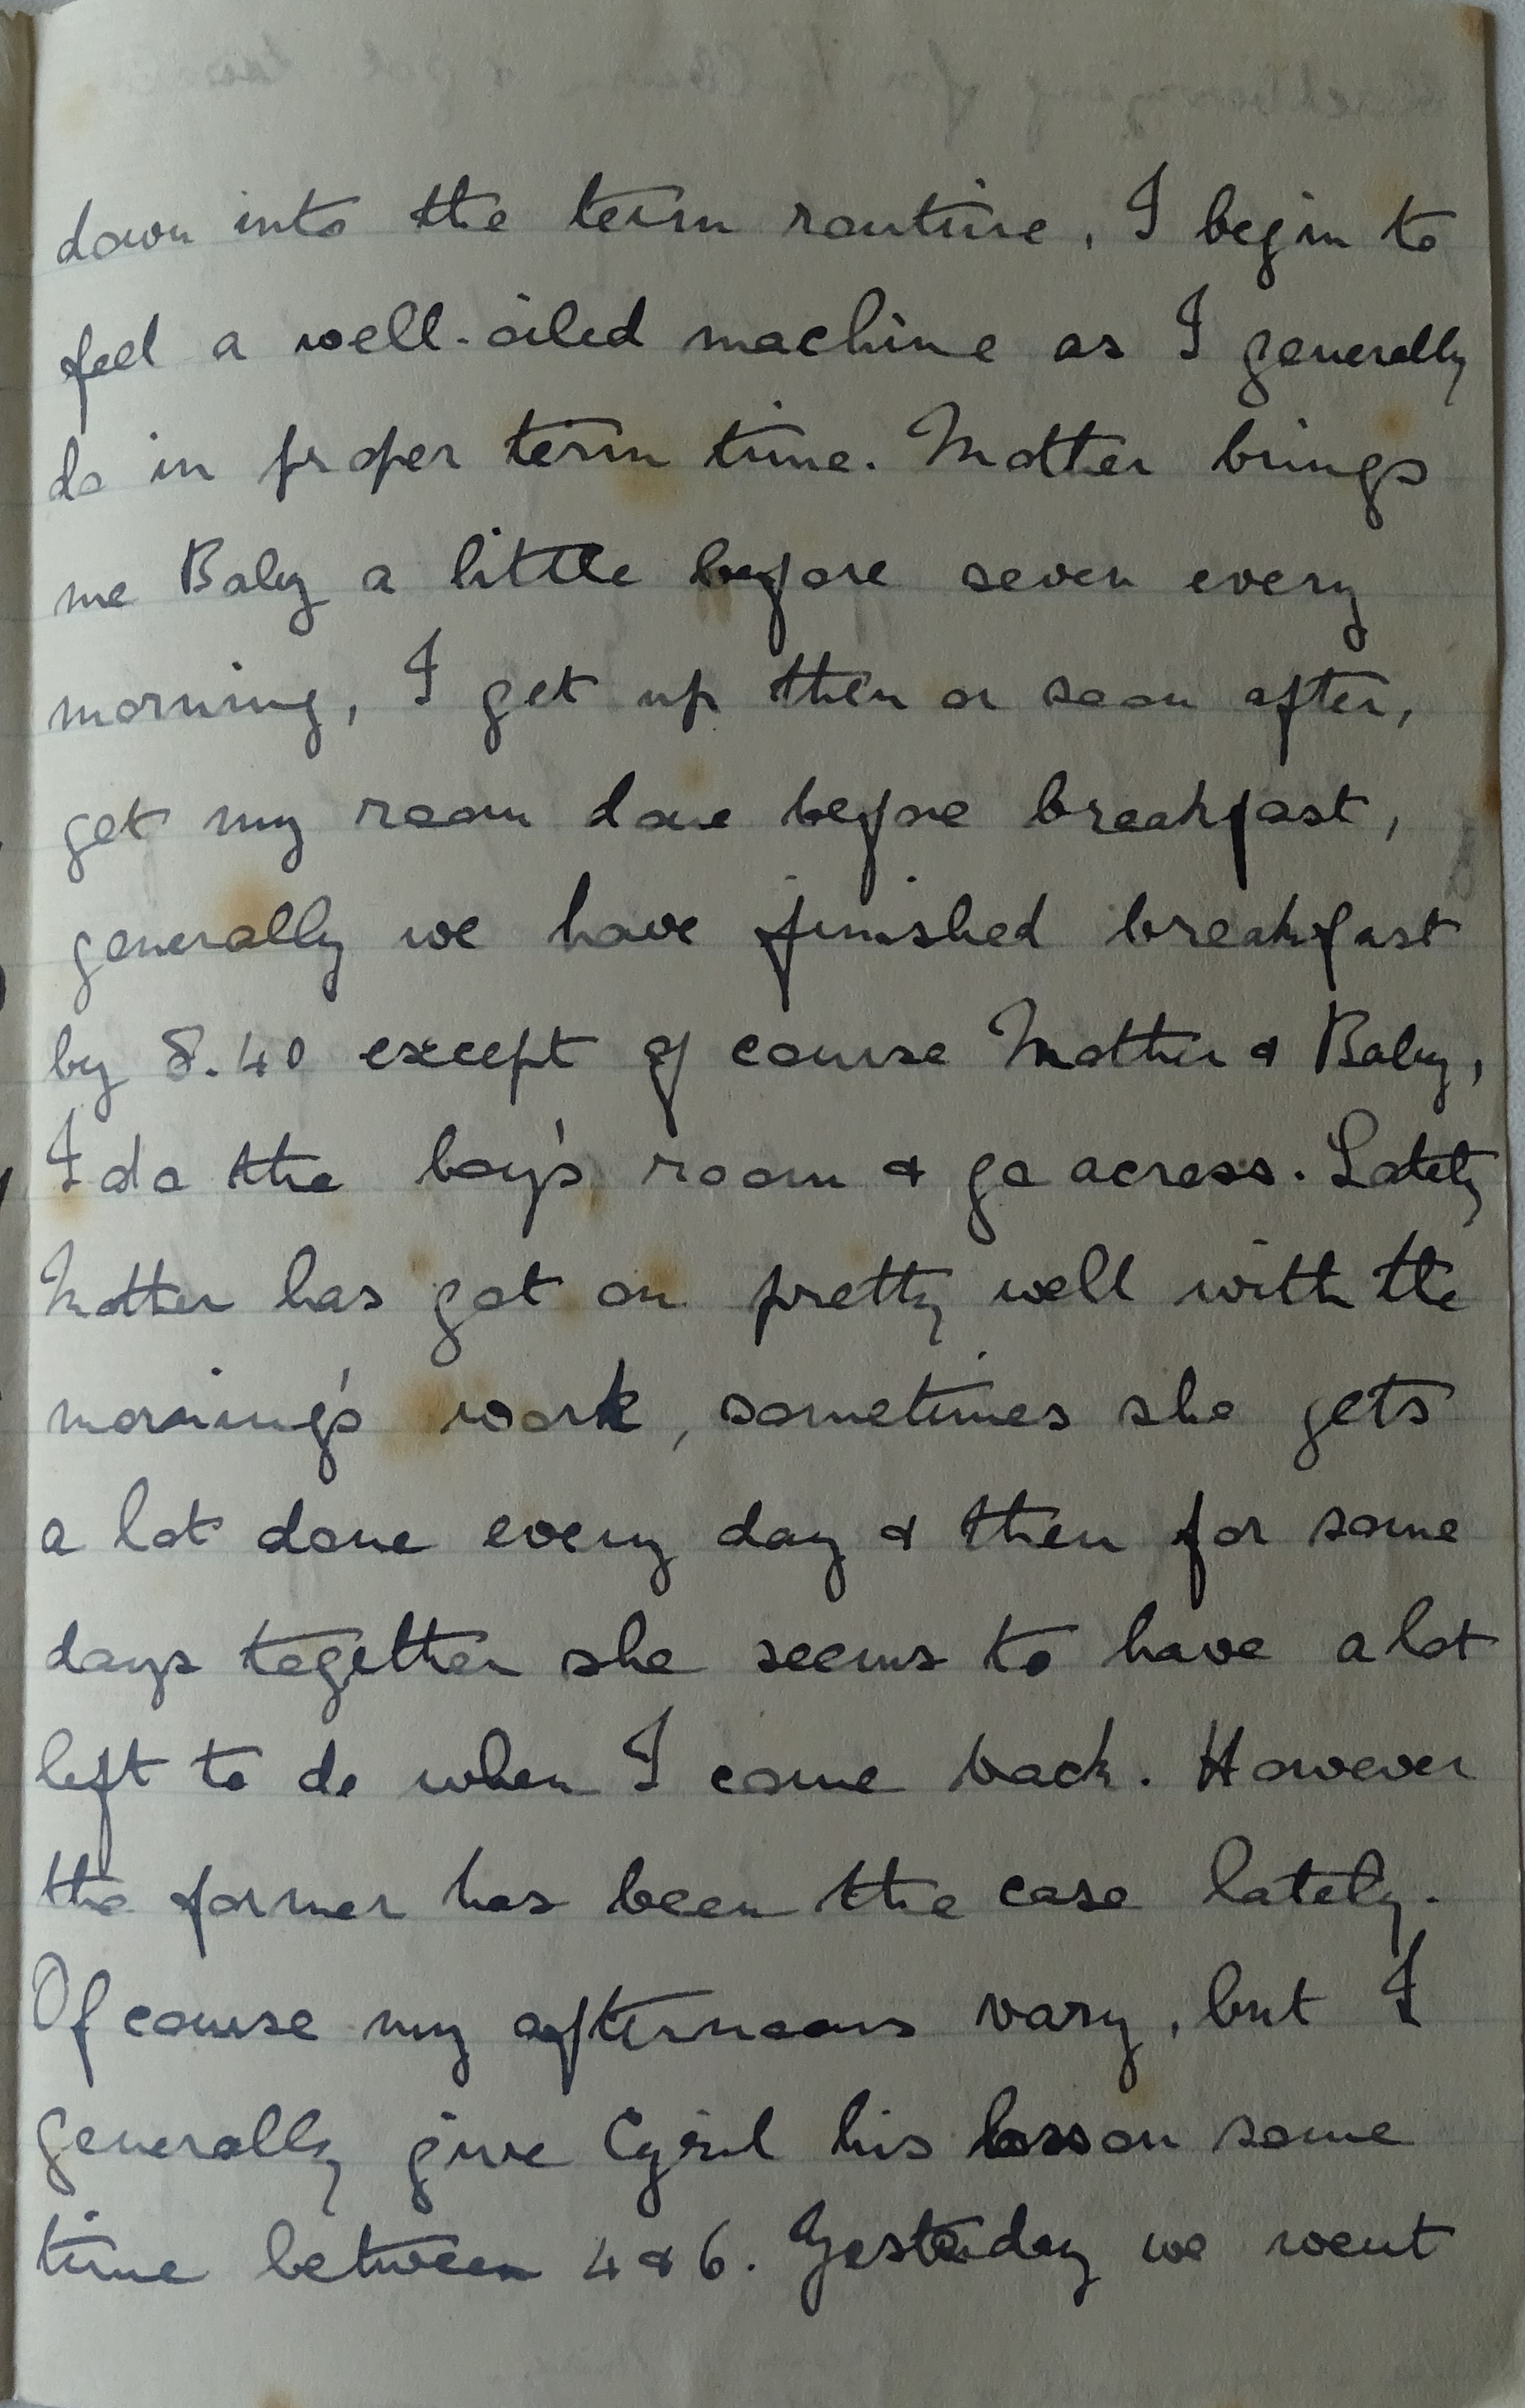 down into the term routine, I begin to
feel a well-oiled machine as I generally
do in proper term time. Mother brings
me Baby a little before seven every
morning, I get up then or soon after,
get my room done before breakfast,
generally we have finished breakfast
by 8.40 except of course Mother & Baby,
I do the boy's room & go across. Lately
Mother has got on pretty well with the
morning's work, sometimes she gets
a lot done every day & then for some
days together she seems to have a lot
left to do when I come back. However
the former has been the case lately.
Of course my afternoons vary, but I
generally give Cyril his lesson some
time between 4 & 6. Yesterday we went